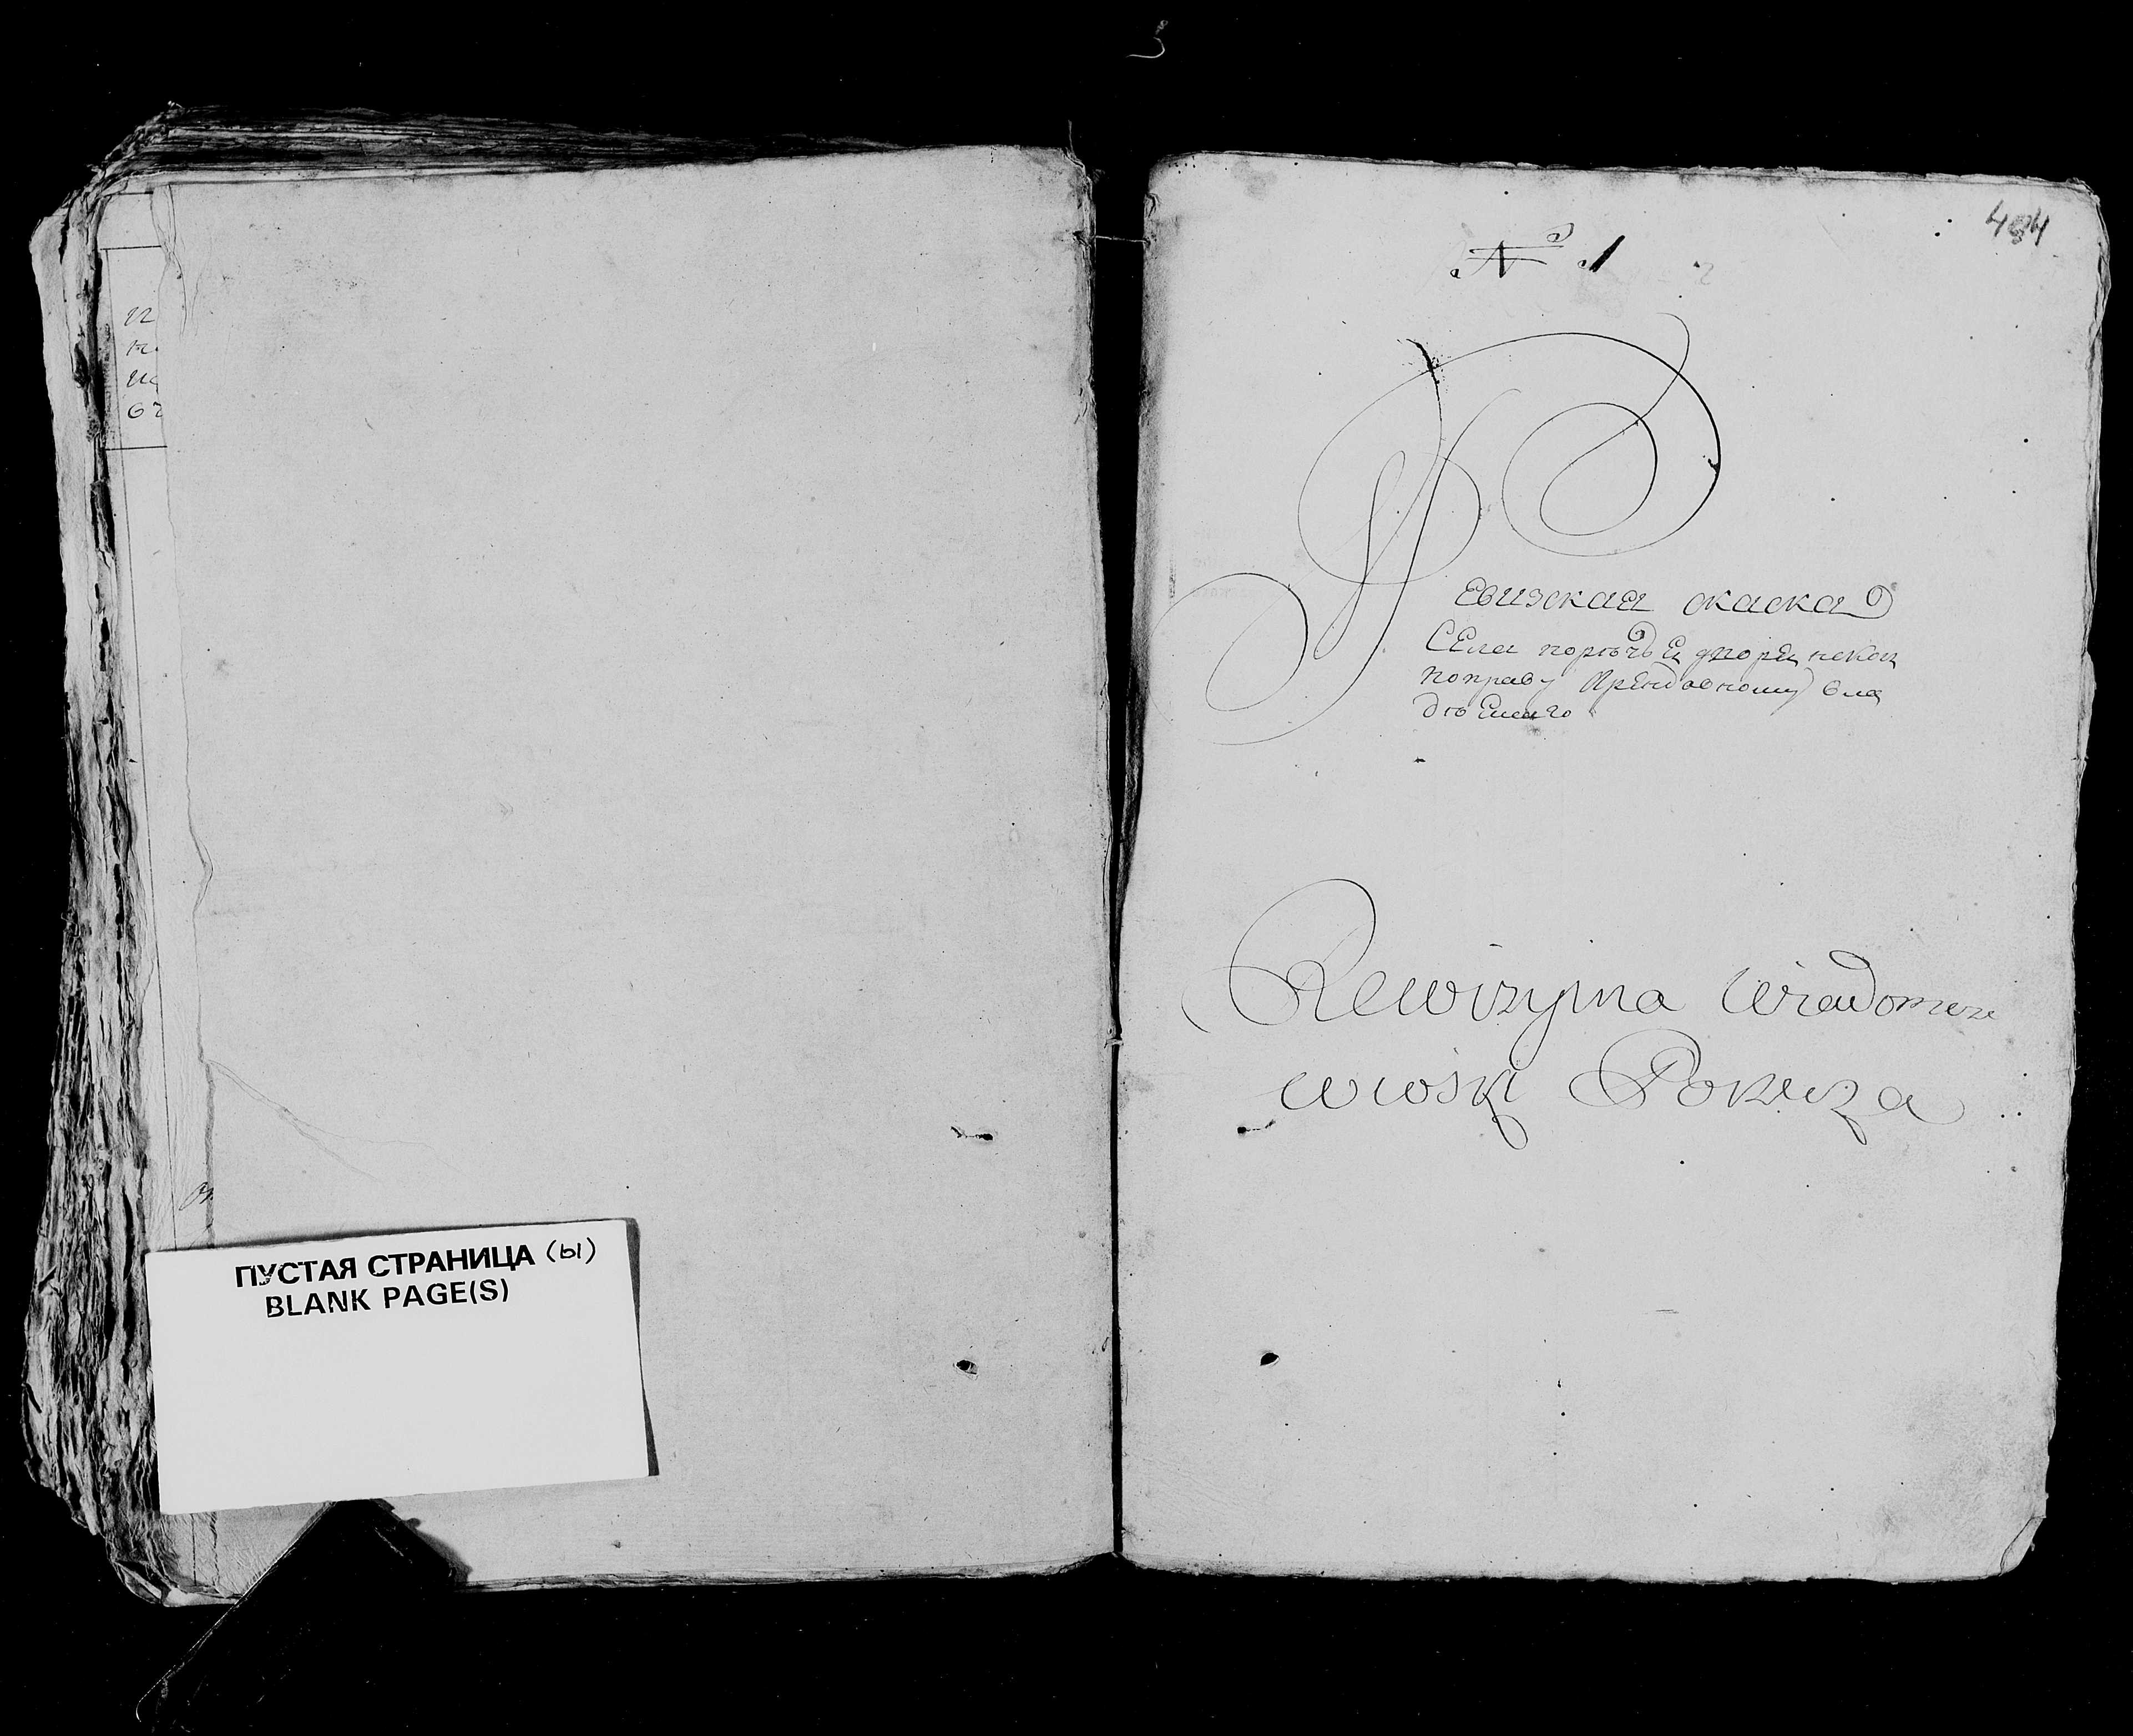 и
н
на
бы
ПУСТАЯ СТРАНИЦА (ы)
BLANK PAGE(S)
484
№ 1
Ревизская скаска
Села поречья дворянской
по праву Арендовному вла
дѣемаго
Rewizyjna Wiadomość
wioski Porzecza